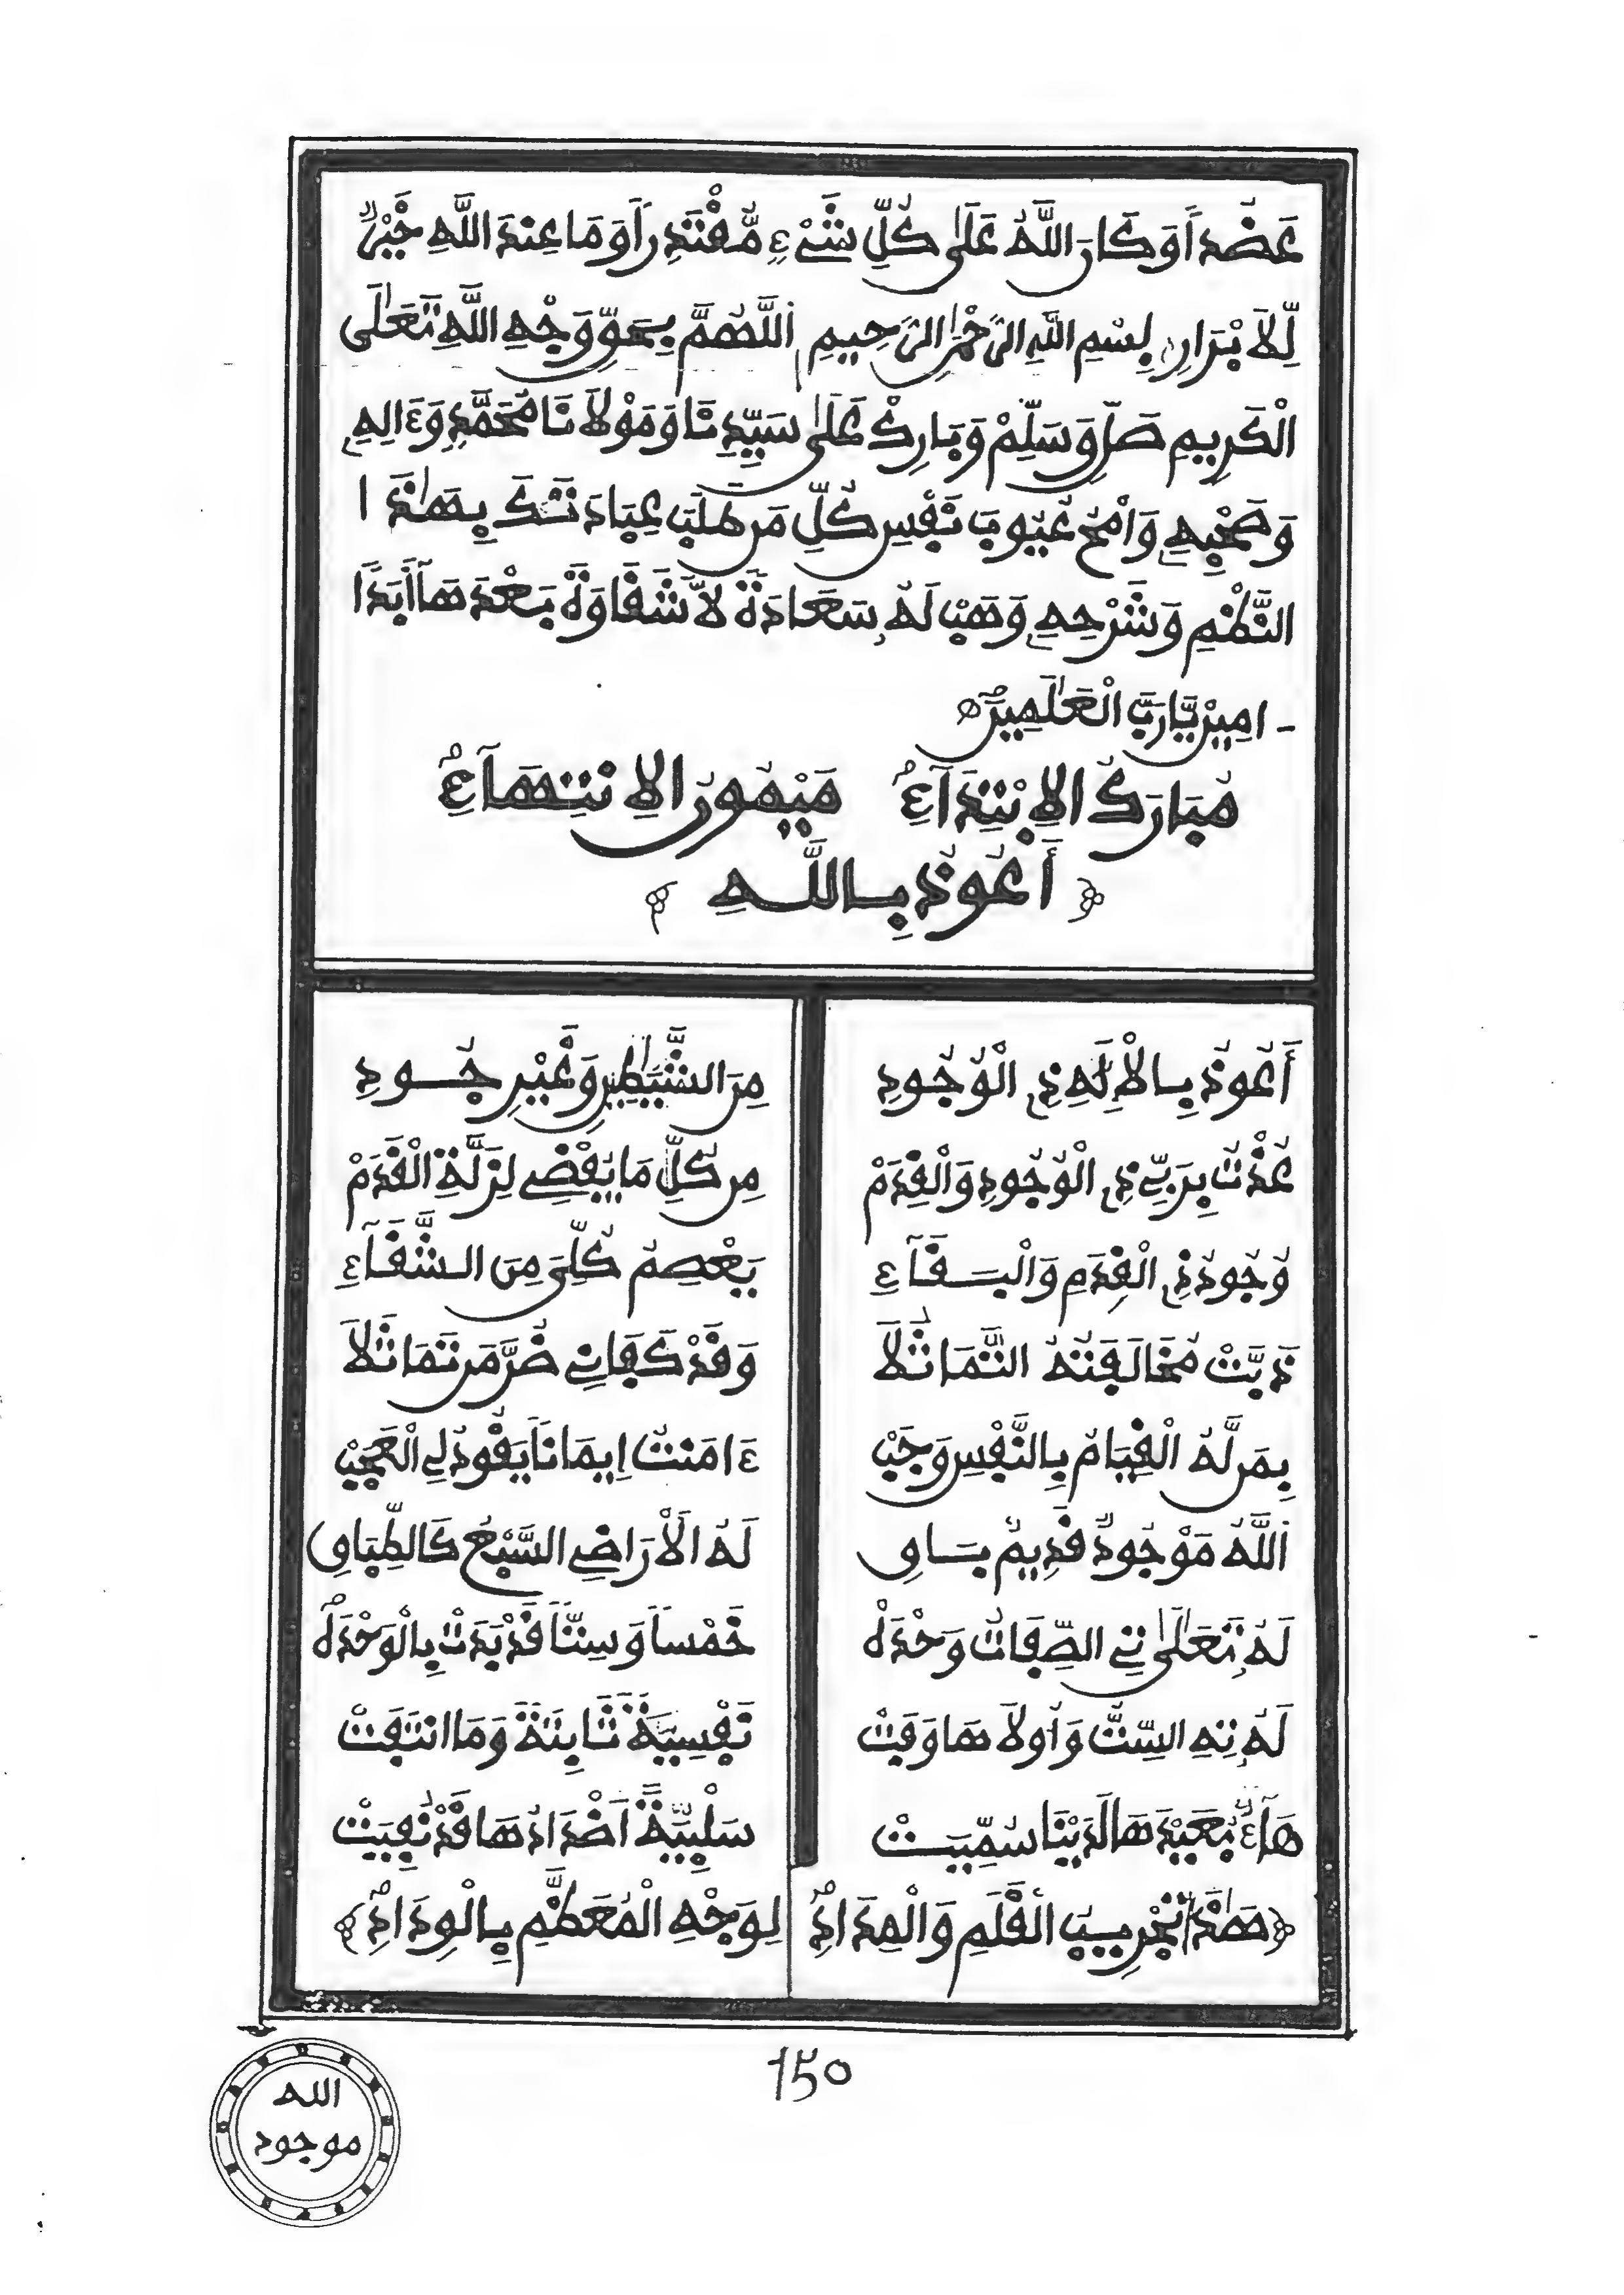 عَضُدًا وَكَانَ اللَّهُ عَلَىٰ كُلِّ شَيْءٍ مُّقْتَدِرًا وَمَا عِندَ اللَّهِ خَيْرٌ
لِّلْأَبْرَارِ بِسْمِ اللَّهِ الرَّحْمَٰنِ الرَّحِيمِ اللَّهُمَّ بِحَقِّ وَجْهِ اللَّهِ تَعَالَى
الْكَرِيمِ صَلِّ وَسَلِّمْ وَبَارِكْ عَلَىٰ سَيِّدِنَا وَمَوْلَانَا مُحَمَّدٍ وَءَالِهِ
وَصَحْبِهِ وَامْحُ عُيُوبَ نَفْسِ كُلِّ مَن طَلَبَ عِبَادَتَكَ بِهَٰذَا
النَّظْمِ وَشَرْحِهِ وَهَبْ لَهُ سَعَادَةً لَّا شَقَاوَةَ بَعْدَهَا أَبَدًا
ـَٔامِينْ يَا رَبَّ الْعَٰلَمِينَ
مُبَارَكُ الِابْتِدَآءِ مَيْمُونُ الِانتِهَآءِ
أَعُوذُ بِاللَّهِ
أَعُوذُ بِالْإِلَٰهِ ذِي الْوُجُودِ مِنَ الشَّيَٰطِينِ وَغَيْرِ جُودِ
عُذْتُ بِرَبِّي ذِي الْوُجُودِ وَالْقِدَمْ مِن كُلِّ مَا يُفْضِي لِزَلَّةِ الْقَدَمْ
وُجُودُ ذِي الْقِدَمِ وَالْبَقَآءِ يَعْصِمُ كُلِّيَ مِنَ الشَّقَآءِ
ذَبَّتْ مُخَالَفَتُهُ التَّمَاثُلَا وَقَدْ كَفَانِي ضُرَّ مَن تَمَاثَلَا
بِمَن لَّهُ الْقِيَامُ بِالنَّفْسِ وَجَبْ ءَامَنتُ إِيمَانًا يَقُودُ لِي الْعَجَبْ
اللَّهُ مَوْجُودٌ قَدِيمٌ بَاقِ لَهُ الْأَرَاضِي السَّبْعُ كَالطِّبَاقِ
لَهُ تَعَالَىٰ فِي الصِّفَاتِ وَحْدَهْ خَمْسًا وَسِتًّا قَدْ بَدَتْ بِالْوَحْدَهْ
لَهُ تِهِ السِّتُّ وَأُولَاهَا وَفَتْ نَفْسِيَّةً ثَابِتَةً وَمَا انتَفَتْ
هَآءٌ بُعَيْدَهَا لَدَيْنَا سُمِّيَتْ سَلْبِيَّةً أَضْدَادُهَا قَدْ نُفِيَتْ
هَٰذَا تَجْرِيبُ الْقَلَمِ وَالْمِدَادِ لِوَجْهِ الْمُعَظَّمِ بِالْوِدَادِ
150
الله
موجود